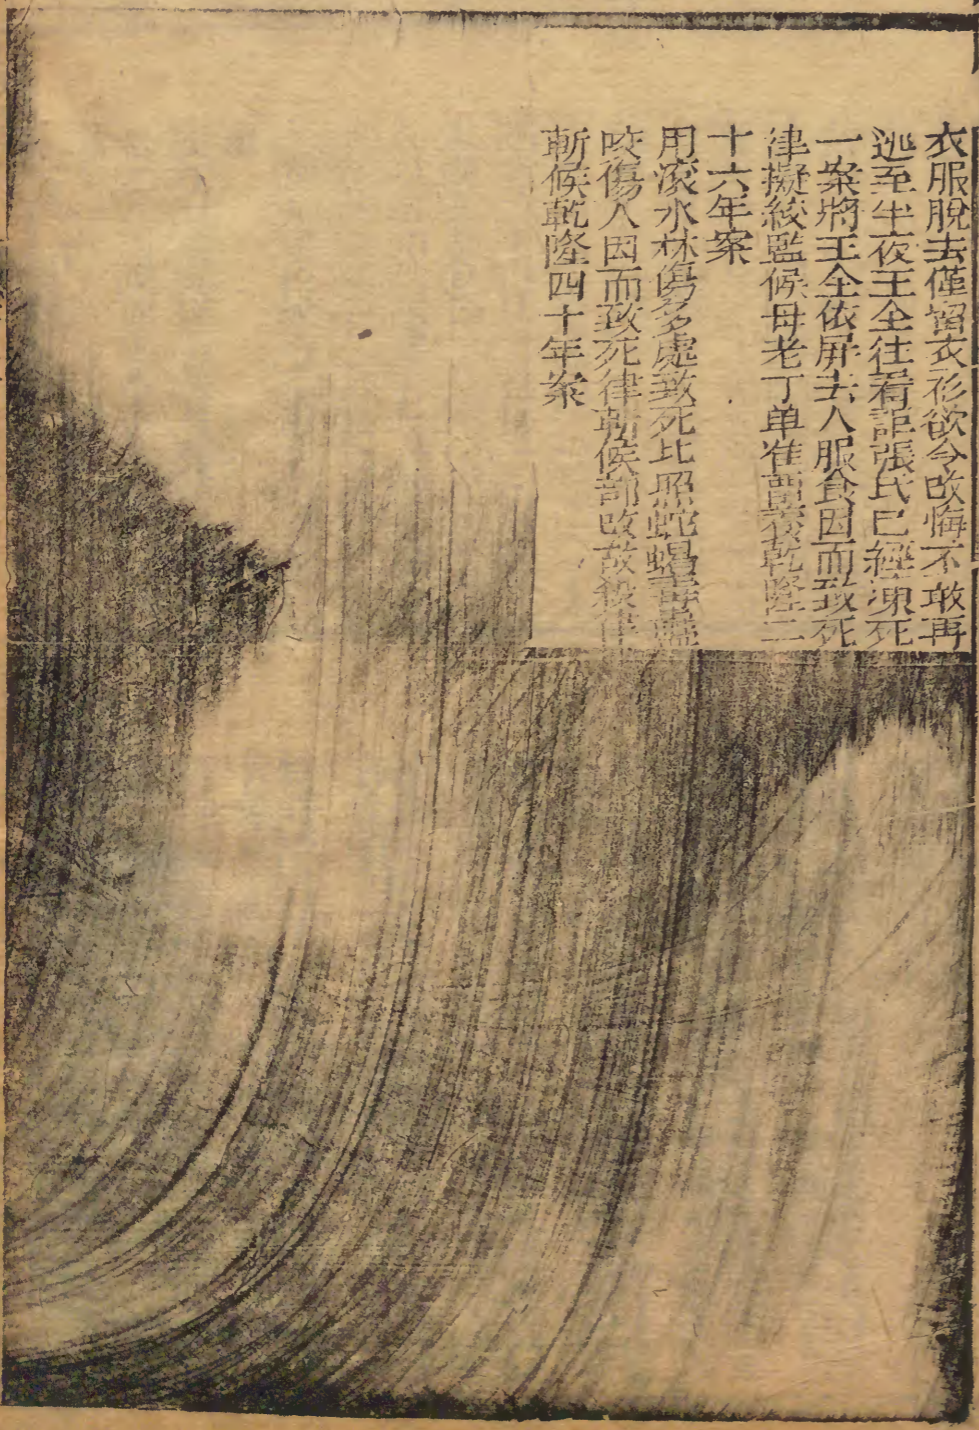 衣服脫去僅留衣衫欲令改悔不敢再
逃至半夜王全往看詎張氏已經凍死
一案將王全依屏去人服食因而致死
律擬絞監候母老丁单准畱養乾隆二
十六年案
用滚水淋傷多處致死比照蛇蝎毒蟲
咬傷人因而致死律斬候部改故殺律
斬候乾隆四十年案